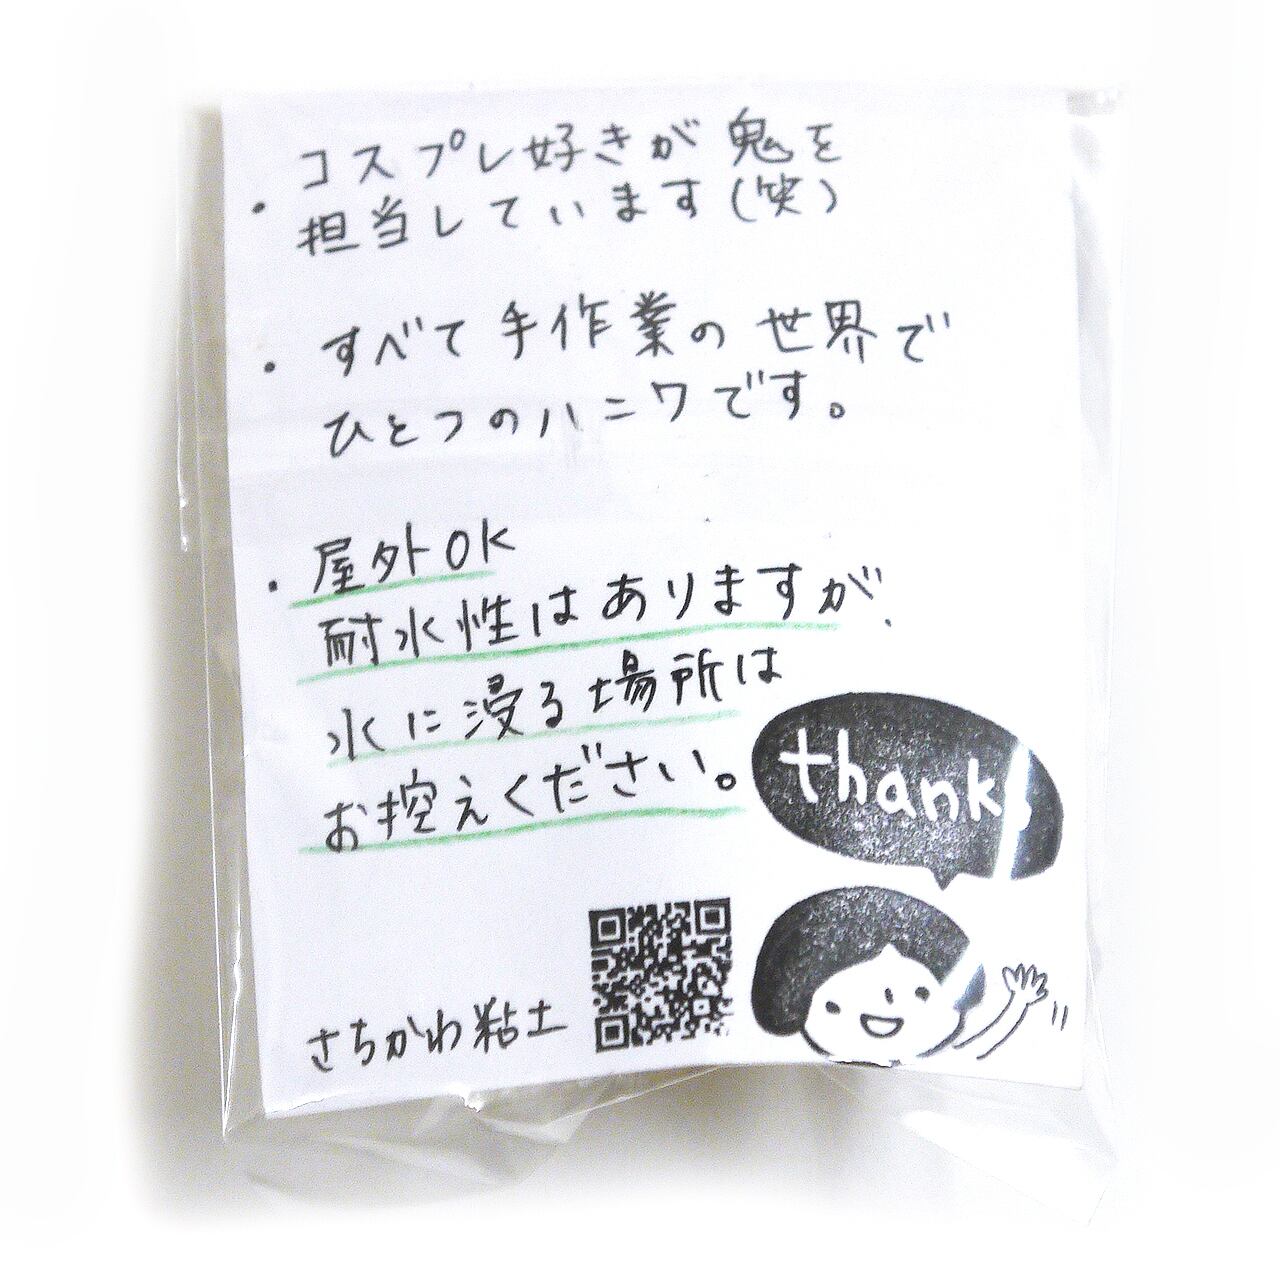 ・コスプレ好きが鬼を
担当しています(笑)
・すべて手作業の世界で
ひとつのハニワです。
・屋外OK
耐水性はありますが、
水に浸る場所は
お控えください。
thanks
さちかわ粘土